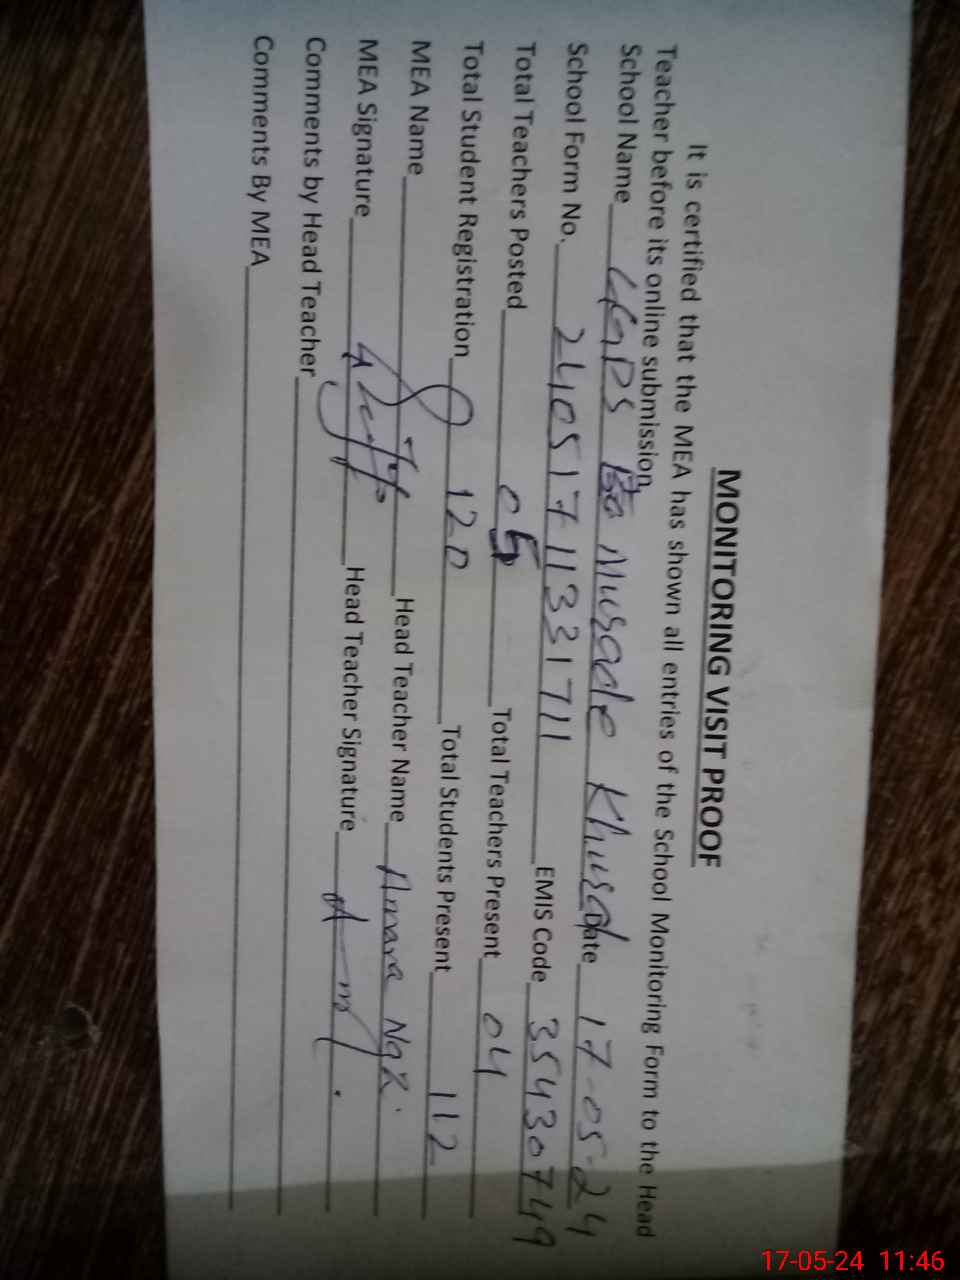 MONITORING VISIT PROOF
It is certified that the MEA has shown all entries of the School Monitoring Form to the Head
Teacher before its online submission.
School Name GPS Musade Khurd Date 17-05-24
School Form No. 240517113331711 EMIS Code 35430749
Total Teachers Posted 05 Total Teachers Present 04
Total Student Registration 120 Total Students Present 112
MEA Name Head Teacher Name Amara Naz.
MEA Signature Head Teacher Signature
Comments by Head Teacher
Comments By MEA
17-05-24 11:46